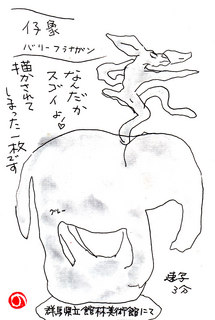 仔象
バリーフラナガン
なんだか
スゴイよ♡
描かされて
しまった一枚です
グレー
3分
群馬県立館林美術館にて